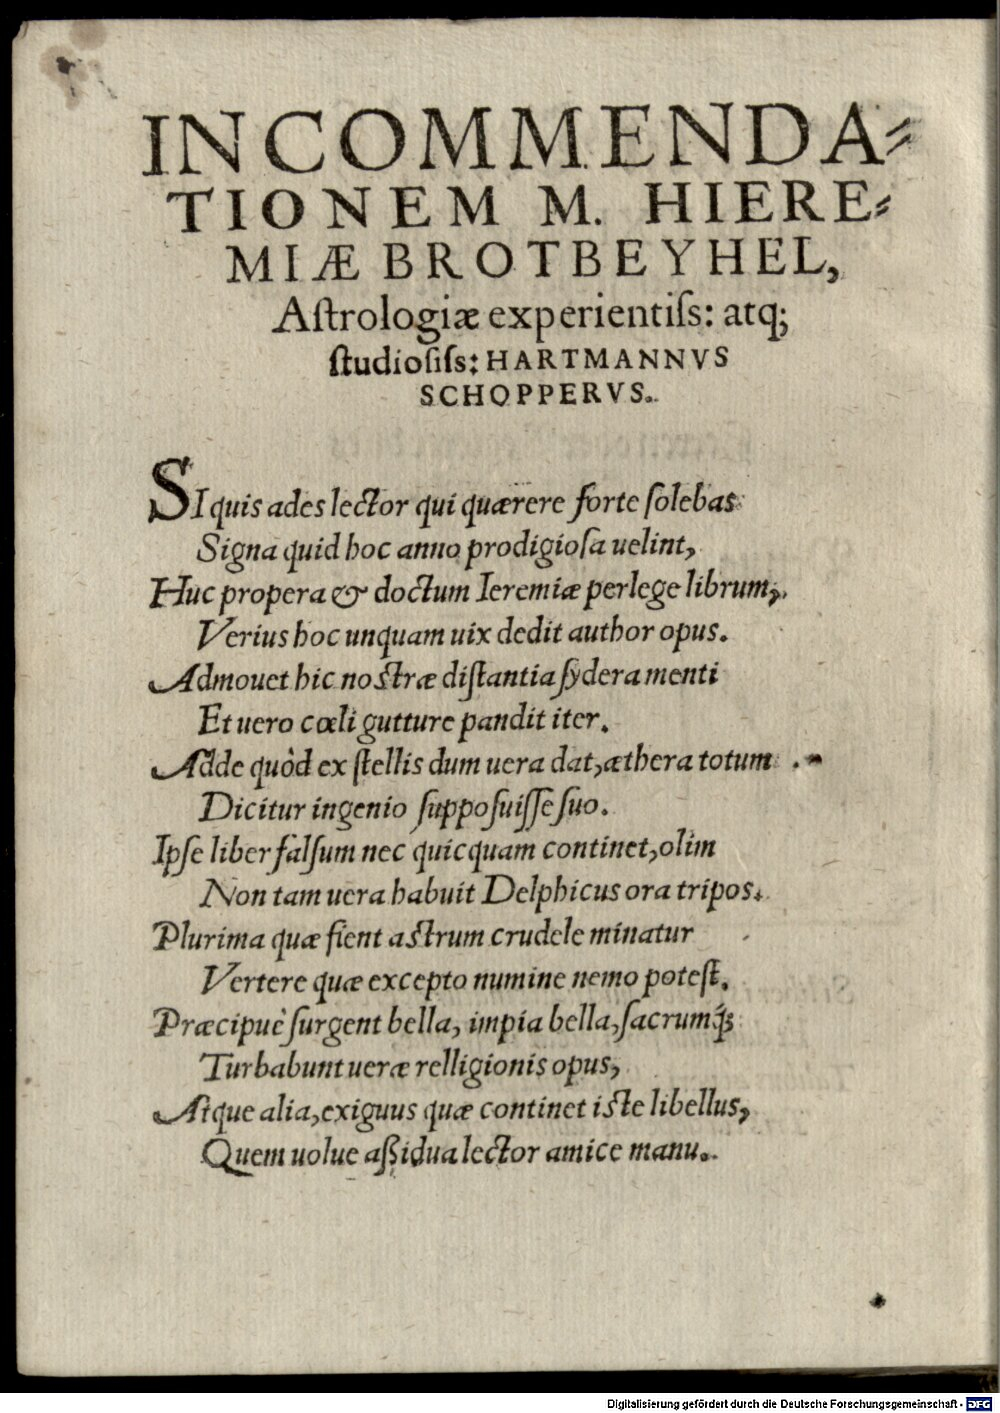 INCOMMENDA⸗
TIONEM M. HIERE⸗
MIÆ BROTBEYHEL,
Aſtrologiæ experientiſs: atq;
ſtudioſiſs: HARTMANNVS
SCHOPPERVS.
SI quis ades lector qui quærere forte ſolebas
Signa quid hoc anno prodigioſa uelint,
Huc propera & doctum Ieremiæ perlege librum,
Verius hoc unquam uix dedit author opus.
Admouet hic noſtræ diſtantia ſydera menti
Et uero cœli gutture pandit iter.
Adde quòd ex ſtellis dum uera dat, æthera totum
Dicitur ingenio ſuppoſuiſſe ſuo.
Ipſe liber falſum nec quicquam continet, olim
Non tam uera habuit Delphicus ora tripos.
Plurima quæ fient aſtrum crudele minatur
Vertere quæ excepto numine nemo poteſt.
Præcipuè ſurgent bella, impia bella, ſacrumq́;
Turbabunt ueræ relligionis opus,
Atque alia, exiguus quæ continet iſte libellus,
Quem uolue aßidua lector amice manu.
Digitalisierung gefördert durch die Deutsche Forschungsgemeinschaft - DFG